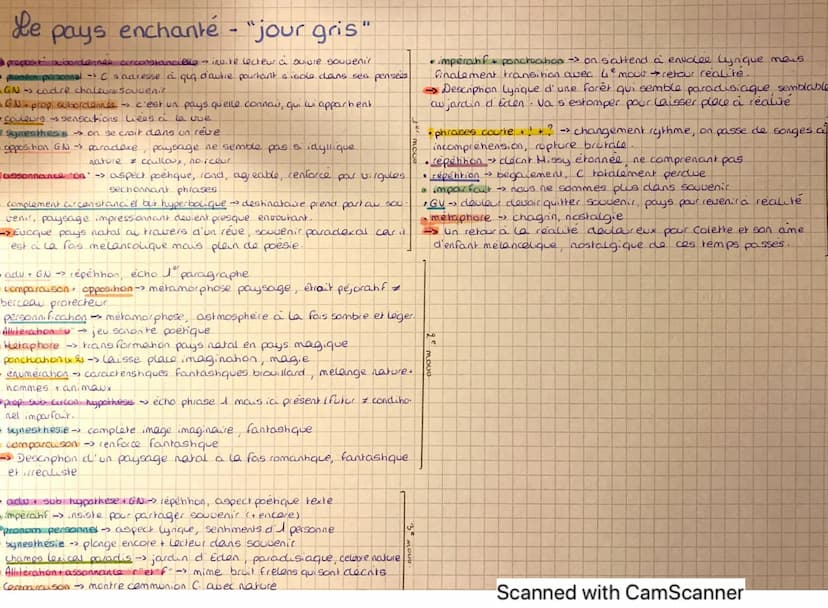 Le pays enchanté - "jour gris"
proposit° subordonnée circonstancielle → invite lecteur à suivre souvenir
pronom personnel → C s'adresse à qqn d'autre pourtant isolé dans ses pensées
GN → cadre chaleur souvenir
GN + prop. subordonnée → c'est un pays qu'elle connaît, qui lui appartient
couleurs → sensations liées à la vue
synesthésie → on se croit dans un rêve
opposition GN → paradoxe, paysage ne semble pas si idyllique
nature ≠ cailloux, noirceur
assonance "on" → aspect poétique, rond, agréable, renforcé par virgules
séchonnant phrases
complément circonstanciel but hyperbolique → destinataire prend part au sou-
venir, paysage impressionnant devient presque envoûtant.
→ Évoque pays natal au travers d'un rêve, souvenir paradoxal car il
est à la fois mélancolique mais plein de poésie.
1er mouv
adv + GN → répétition, écho 1er paragraphe
comparaison + opposition → métamorphose paysage, étroit péjoratif ≠
berceau protecteur
personnification → métamorphose, astmosphère à la fois sombre et léger
Allitération "v" → jeu sonorité poétique
Métaphore → transformation pays natal en pays magique
ponctuation → laisse place imagination, magie
énumération → caractéristiques fantastiques brouillard, mélange nature +
hommes + animaux
prop sub circon hypothèse → écho phrase 1 mais ici présent/futur ≠ conditio-
nel imparfait.
synesthésie → complète image imaginaire, fantastique
comparaison → renforce fantastique
→ Description d'un paysage natal à la fois romantique, fantastique
et irréaliste
2e mouv
adv + sub hypothèse + GN → répétition, aspect poétique texte
impératif → insiste pour partager souvenir (+ encore)
pronom personnel → aspect lyrique, sentiments d'1 personne
synesthésie → plonge encore + lecteur dans souvenir
champs lexical paradis → jardin d'Eden, paradisiaque, célèbre nature
Allitération + assonance "r" et "f" → mime bruit frelons qui sont décrits
Comparaison → montre communion C avec nature
3e mouv
impératif + ponctuation → on s'attend à envolée lyrique mais
finalement transition avec 4e mouv → retour réalité.
→ Description lyrique d'une forêt qui semble paradisiaque, semblable
au jardin d'Eden. Va s'estomper pour laisser place à réalité
phrases courte + ! + ? → changement rythme, on passe de songes à
incompréhension, rupture brutale.
répétition → décrit Missy étonnée, ne comprenant pas
répétition → bégaiement, C totalement perdue
imparfait → nous ne sommes plus dans souvenir
GV → douleur devoir quitter souvenir, pays pour revenir à réalité
métaphore → chagrin, nostalgie
→ Un retour à la réalité douloureux pour Colette et son âme
d'enfant mélancolique, nostalgique de ces temps passés.
Scanned with CamScanner